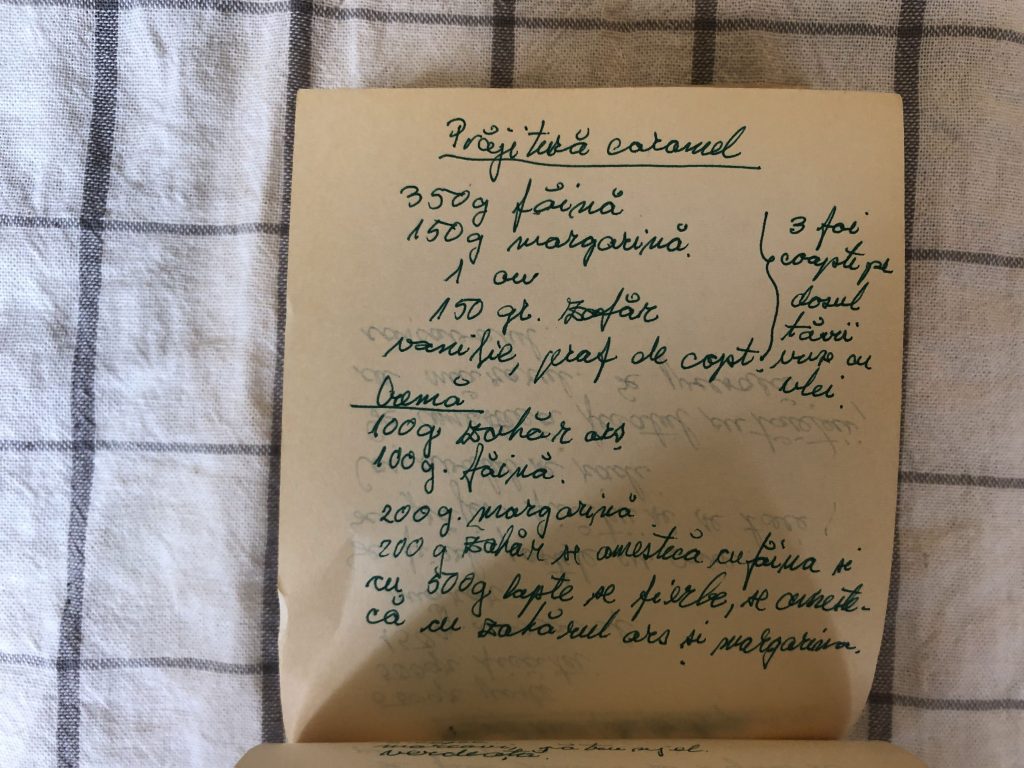 Prăjitură caramel
350g făină
150g margarină
1 ou
150 gr. zahăr
vanilie, praf de copt.
3 foi
coapte pe
dosul
tăvii
uns cu
ulei.
Cremă
100g zahăr ars
100g. făină.
200g. margarină
200 g zahăr se amestecă cu făina și
cu 500g lapte se fierbe, se ameste-
că cu zahărul ars și margarina.